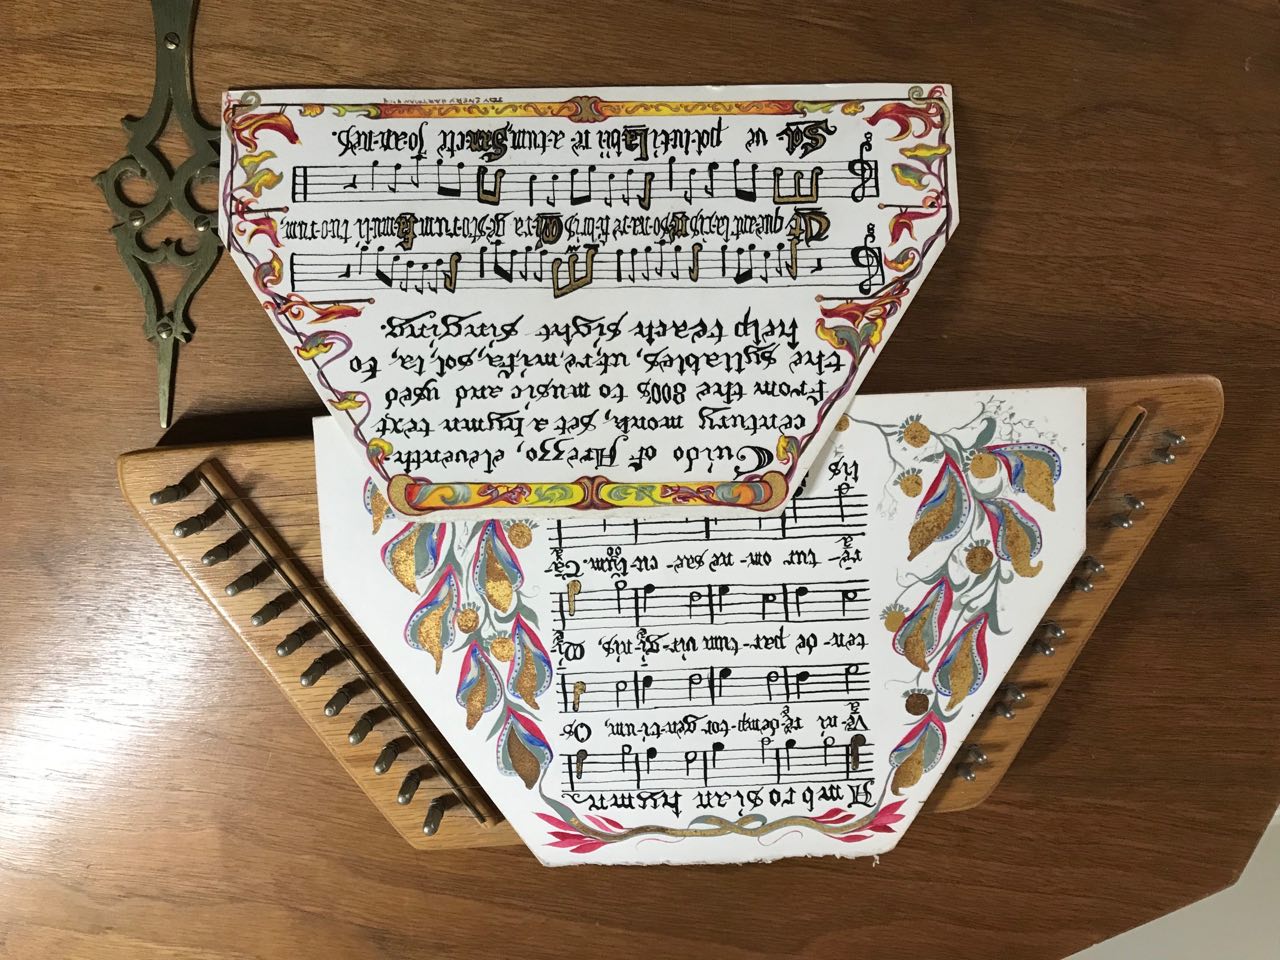 Guido of Arezzo, eleventh
century monk, set a hymn text
from the 800s to music and used
the syllables, ut, re, mi, fa, sol, la, to
help teach sight singing.
Ut que-ant la-xis re-so-na-re fi-bris Mi-ra ge-sto-rum fa-mu-li tu-o-rum,
Sol-ve pol-lu-ti la-bi-i re-a-tum, Sancte Jo-an-nes.
Ambrosian hymn
Ve-ni re-demp-tor gen-ti-um, Os
ten-de par-tum vir-gi-nis, Mi
re-tur om-ne sae-cu-lum.
tis